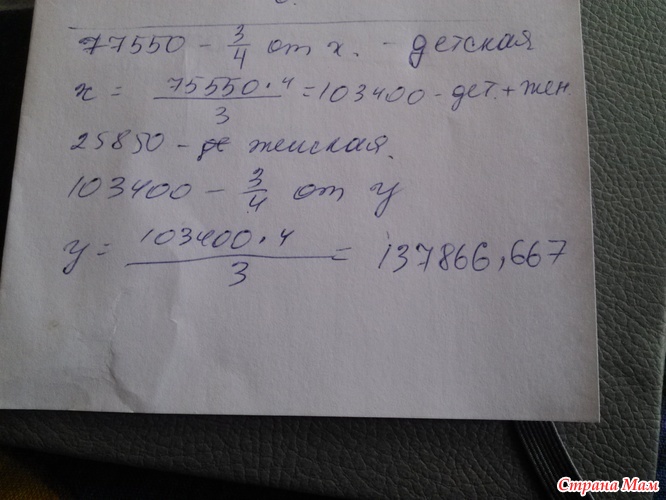 77550 - 3/4 от x. - детская
x = 75550·4/3 = 103400 - дет. + жен.
25850 - женская.
103400 - 3/4 от y
y = 103400·4/3 = 137866,667
Страна Мам